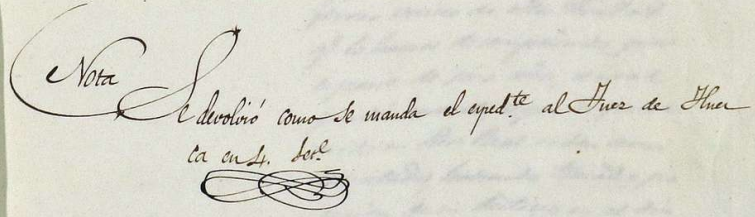 Nota
Se devolvió como se manda el exped.te al Juez de Hues
ca en 4. Set.e